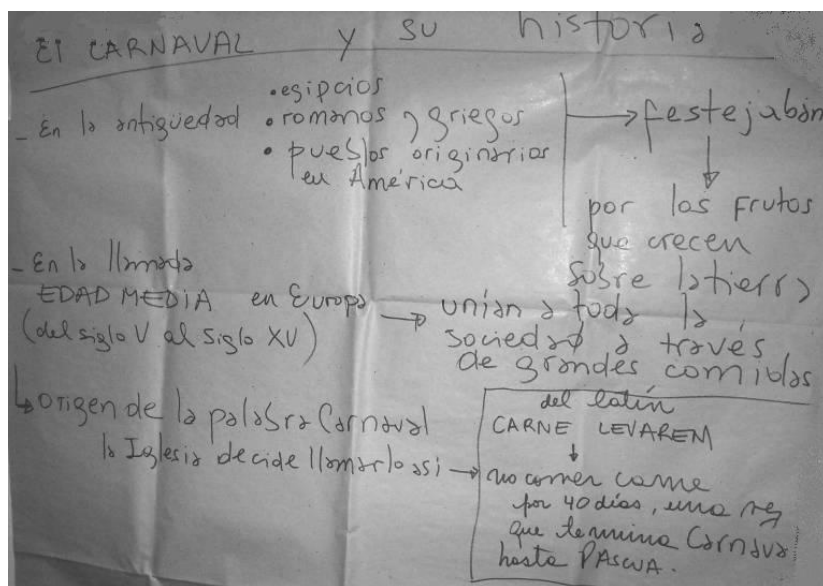 El CARNAVAL y su historia
- En la antigüedad
• egipcios
• romanos y griegos
• pueblos originarios
en América
→ festejaban
↓
por los frutos
que crecen
sobre la tierra
- En la llamada
EDAD MEDIA en Europa →
(del siglo V al siglo XV)
unían a toda la
sociedad a través
de grandes comidas
↳ origen de la palabra Carnaval
la Iglesia decide llamarlo así →
del latín
CARNE LEVAREM
↓
no comer carne
por 40 días, una vez
que termina Carnava
hasta PASCUA.